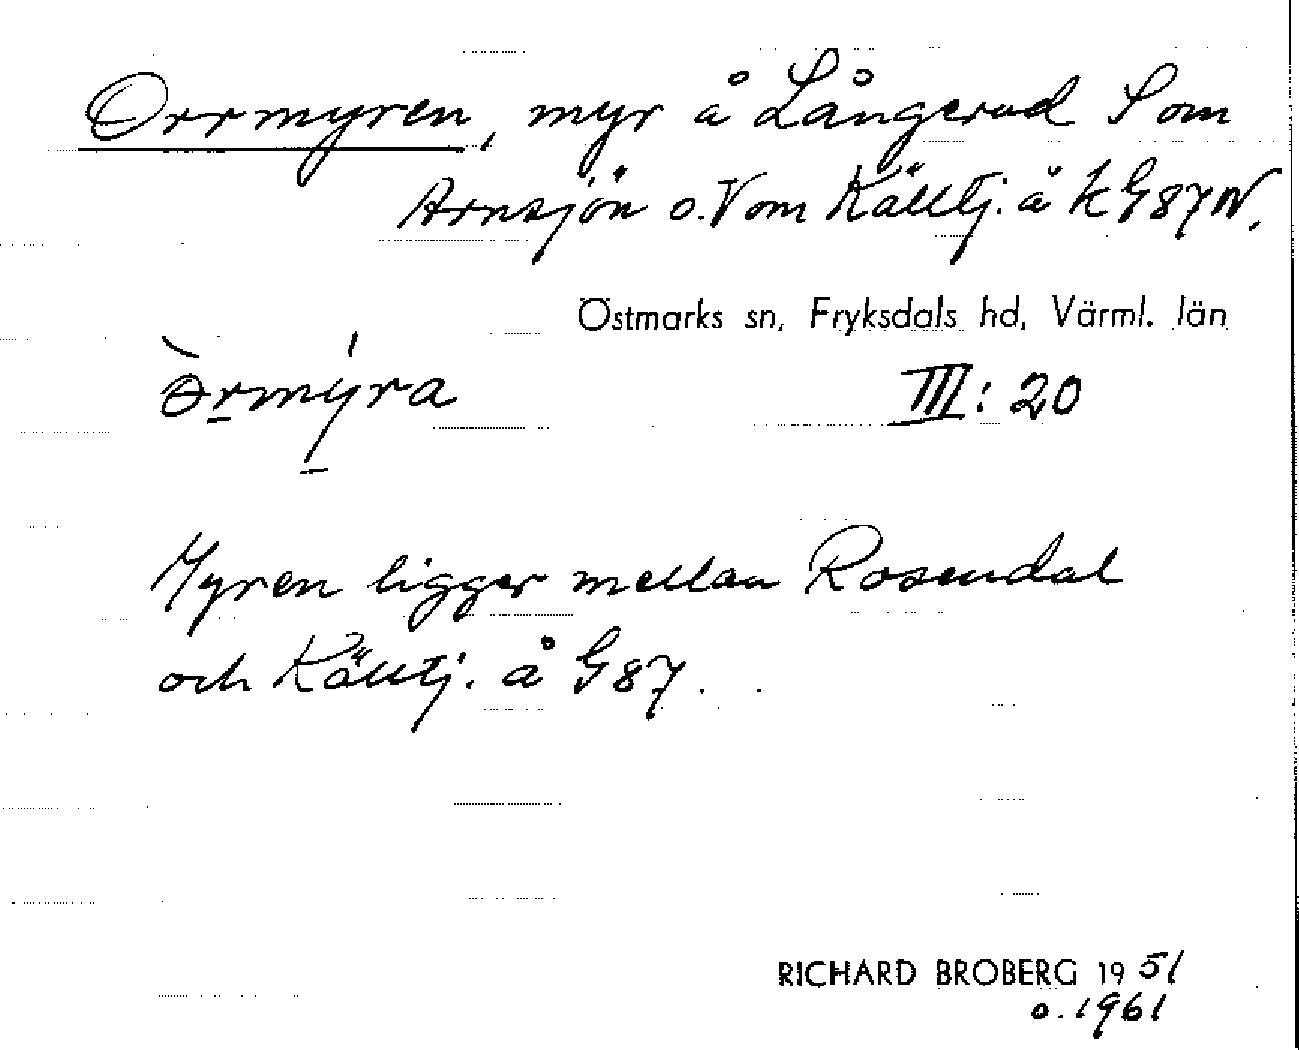 Orrmyren, myr å Långerud S om
Arnsjön o. V om Källtj. å k G87N.
Östmarks sn, Fryksdals hd, Värml. län
III: 20
Myren ligger mellan Rosendal
och Källtj. å G87.
RICHARD BROBERG 1951
o. 1961